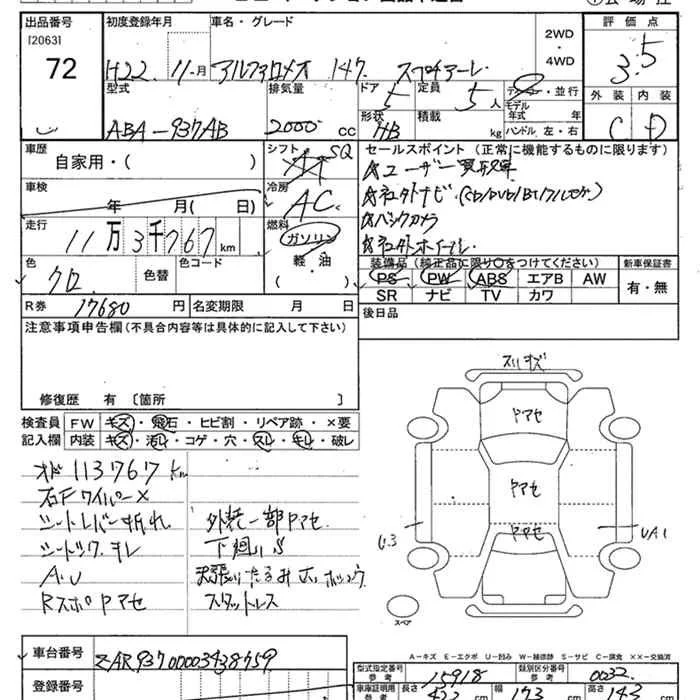 出品番号 初度登録年月 車名・グレード 2WD・4WD 評価点
[2063]
72 H22. 11 -月 アルファロメオ 147. 3.5
型式 排気量 ドア 5 定員 5人 ディーラー・並行
モデル年式 年 外装 内装
ABA-937AB 2000 cc 形状 HB 積載 kg ハンドル 左・右 C D
車歴 シフト セールスポイント (正常に機能するものに限ります)
自家用・( ) SQ ☆ユーザー買取車
車検 冷房 ☆社外ナビ
年 月(日) AC ☆バックカメラ
走行 燃料 ☆社外ホイール
11万3千767 km ガソリン 軽・油 ( )
装備品 (純正品に限り○をつけてください) 新車保証書
色 クロ 色替 色コード PS PW ABS エアB AW 有・無
SR ナビ TV カワ
R券 17680 円 名変期限 月 日 後日品
注意事項申告欄 (不具合内容等は具体的に記入して下さい)
修復歴 有 〔箇所 〕
検査員 FW キズ・飛石・ヒビ割・リペア跡・×要
記入欄 内装 キズ・汚レ・コゲ・穴・スレ・キレ・破レ
メーター 113767 km
右Fワイパー×
シートレバー折れ 外装一部Pアセ
下廻りS
A・U
RスポPアセ スタッドレス
スリキズ
Pアセ
Pアセ
Pアセ
U3 UA1
スペア
A-キズ E-エクボ U-凹み W-補修跡 S-サビ C-腐食 XX-交換済
車台番号 ZAR93700003438759
登録番号
型式指定番号 参考 15918 類別区分番号 参考 0032
車庫証明用 参考 長さ 422 cm 幅 173 cm 高さ 143 cm